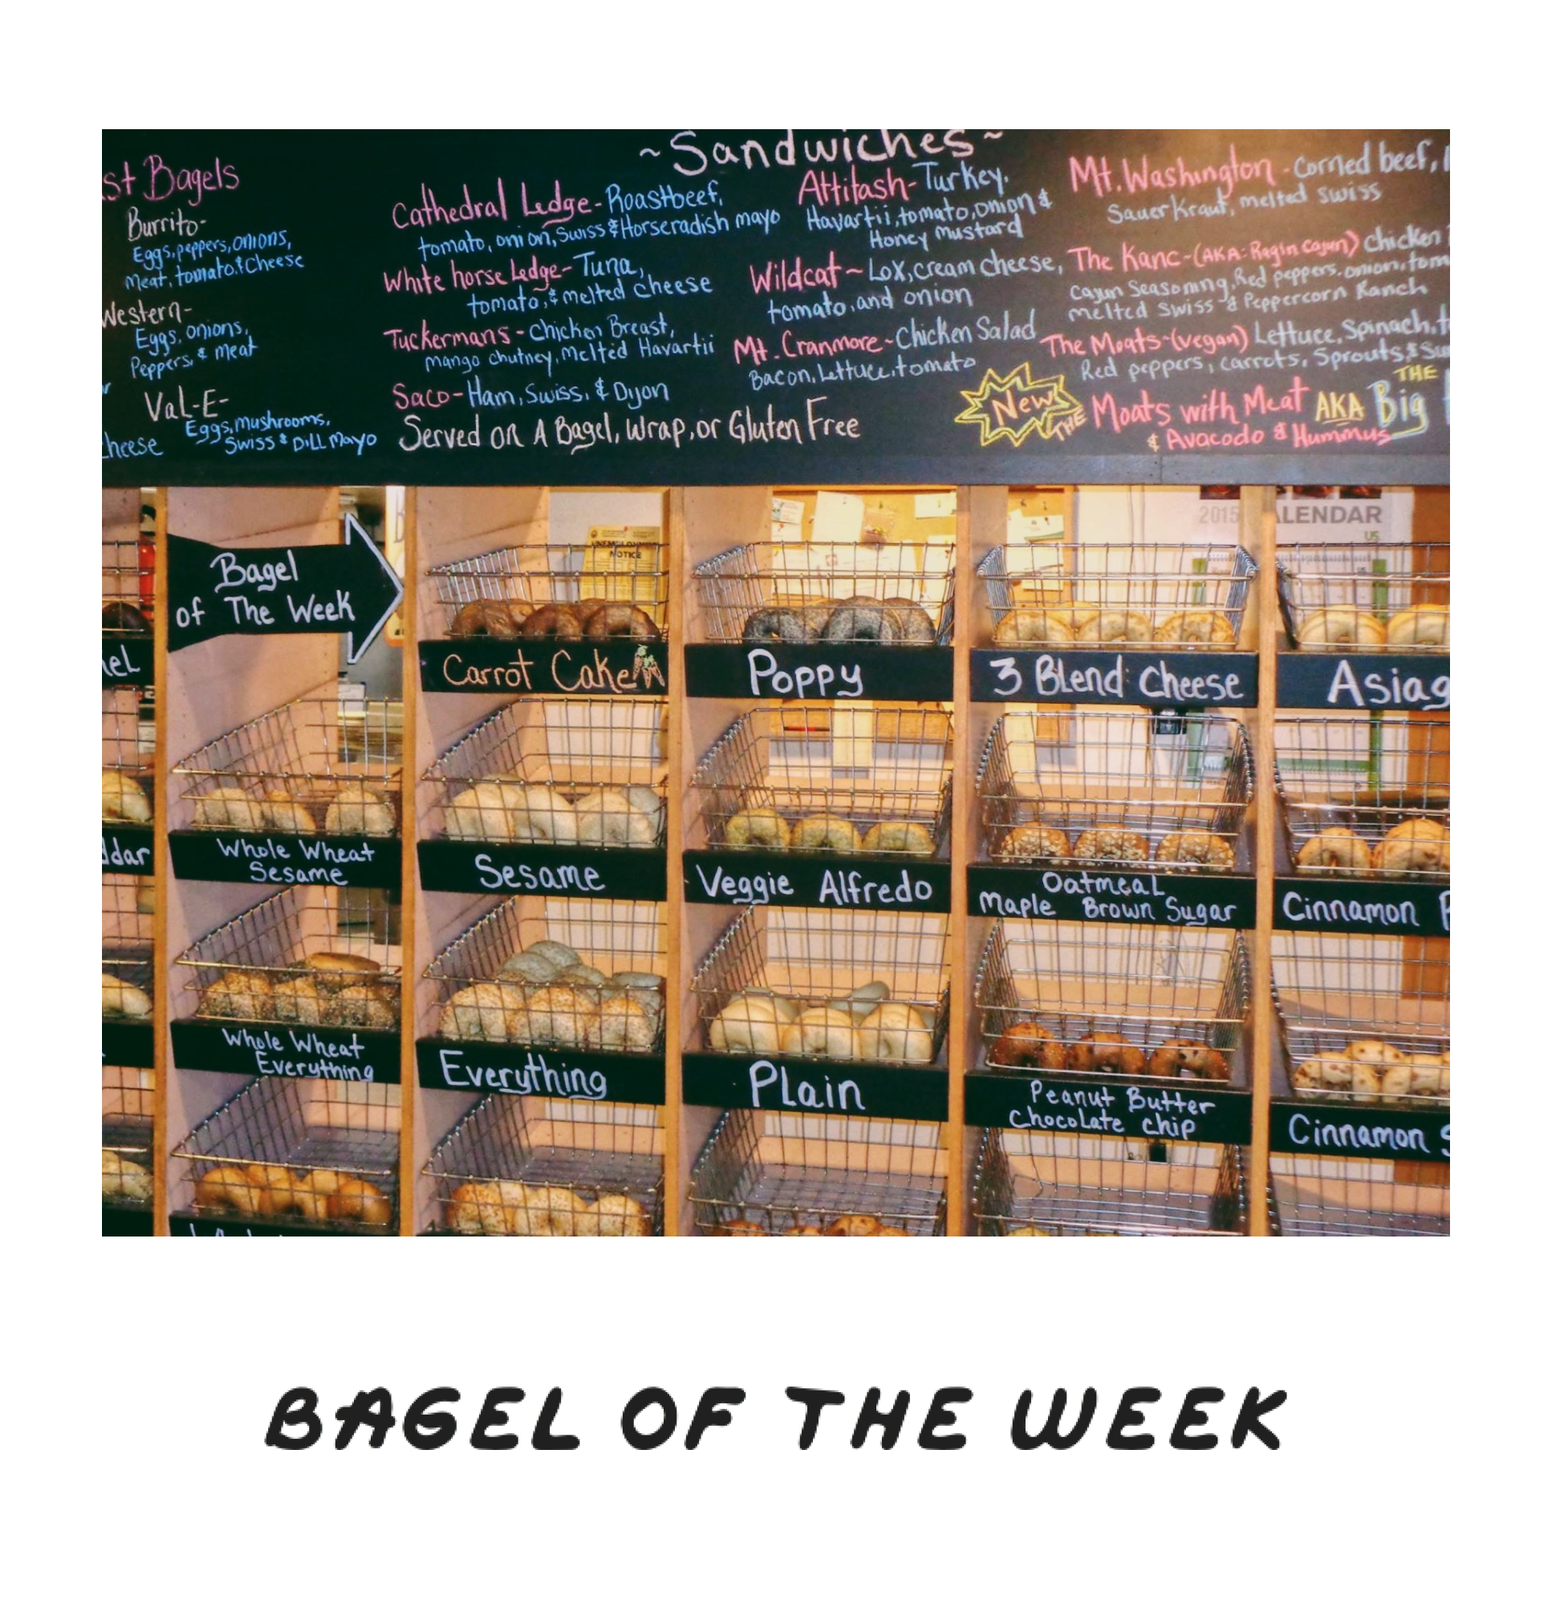 ~Sandwiches~
st Bagels
Burrito-
Eggs, peppers, onions,
Meat, tomato & Cheese
Western-
Eggs, onions,
Peppers, & meat
Val-E-
Eggs, mushrooms,
Swiss & Dill Mayo
cheese
Cathedral Ledge - Roastbeef,
tomato, onion, Swiss & Horseradish mayo
White horse Ledge - Tuna,
tomato, & melted cheese
Tuckermans - Chicken Breast,
mango chutney, melted Havartii
Saco - Ham, Swiss, & Dijon
Served on A Bagel, Wrap, or Gluten Free
Attitash - Turkey,
Havartii, tomato, onion &
Honey mustard
Wildcat ~ Lox, cream cheese,
tomato, and onion
Mt. Cranmore - Chicken Salad
Bacon, Lettuce, tomato
Mt. Washington - Corned beef,
Sauerkraut, melted swiss
The Kanc - (AKA: Ragin Cajun) chicken
Cajun Seasoning, Red peppers, onion, tom
melted Swiss & Peppercorn Ranch
The Moats - (vegan) Lettuce, Spinach, t
Red peppers, carrots, Sprouts, & Su
New
THE Moats with Meat AKA THE Big
& Avacodo & Hummus
2015 CALENDAR
US
NOTICE
Bagel
of The Week
Carrot Cake
Poppy
3 Blend Cheese
Asiag
eL
ddar
Whole Wheat
Sesame
Sesame
Veggie Alfredo
Oatmeal
Maple Brown Sugar
Cinnamon
Whole Wheat
Everything
Everything
Plain
Peanut Butter
Chocolate chip
Cinnamon S
BAGEL OF THE WEEK